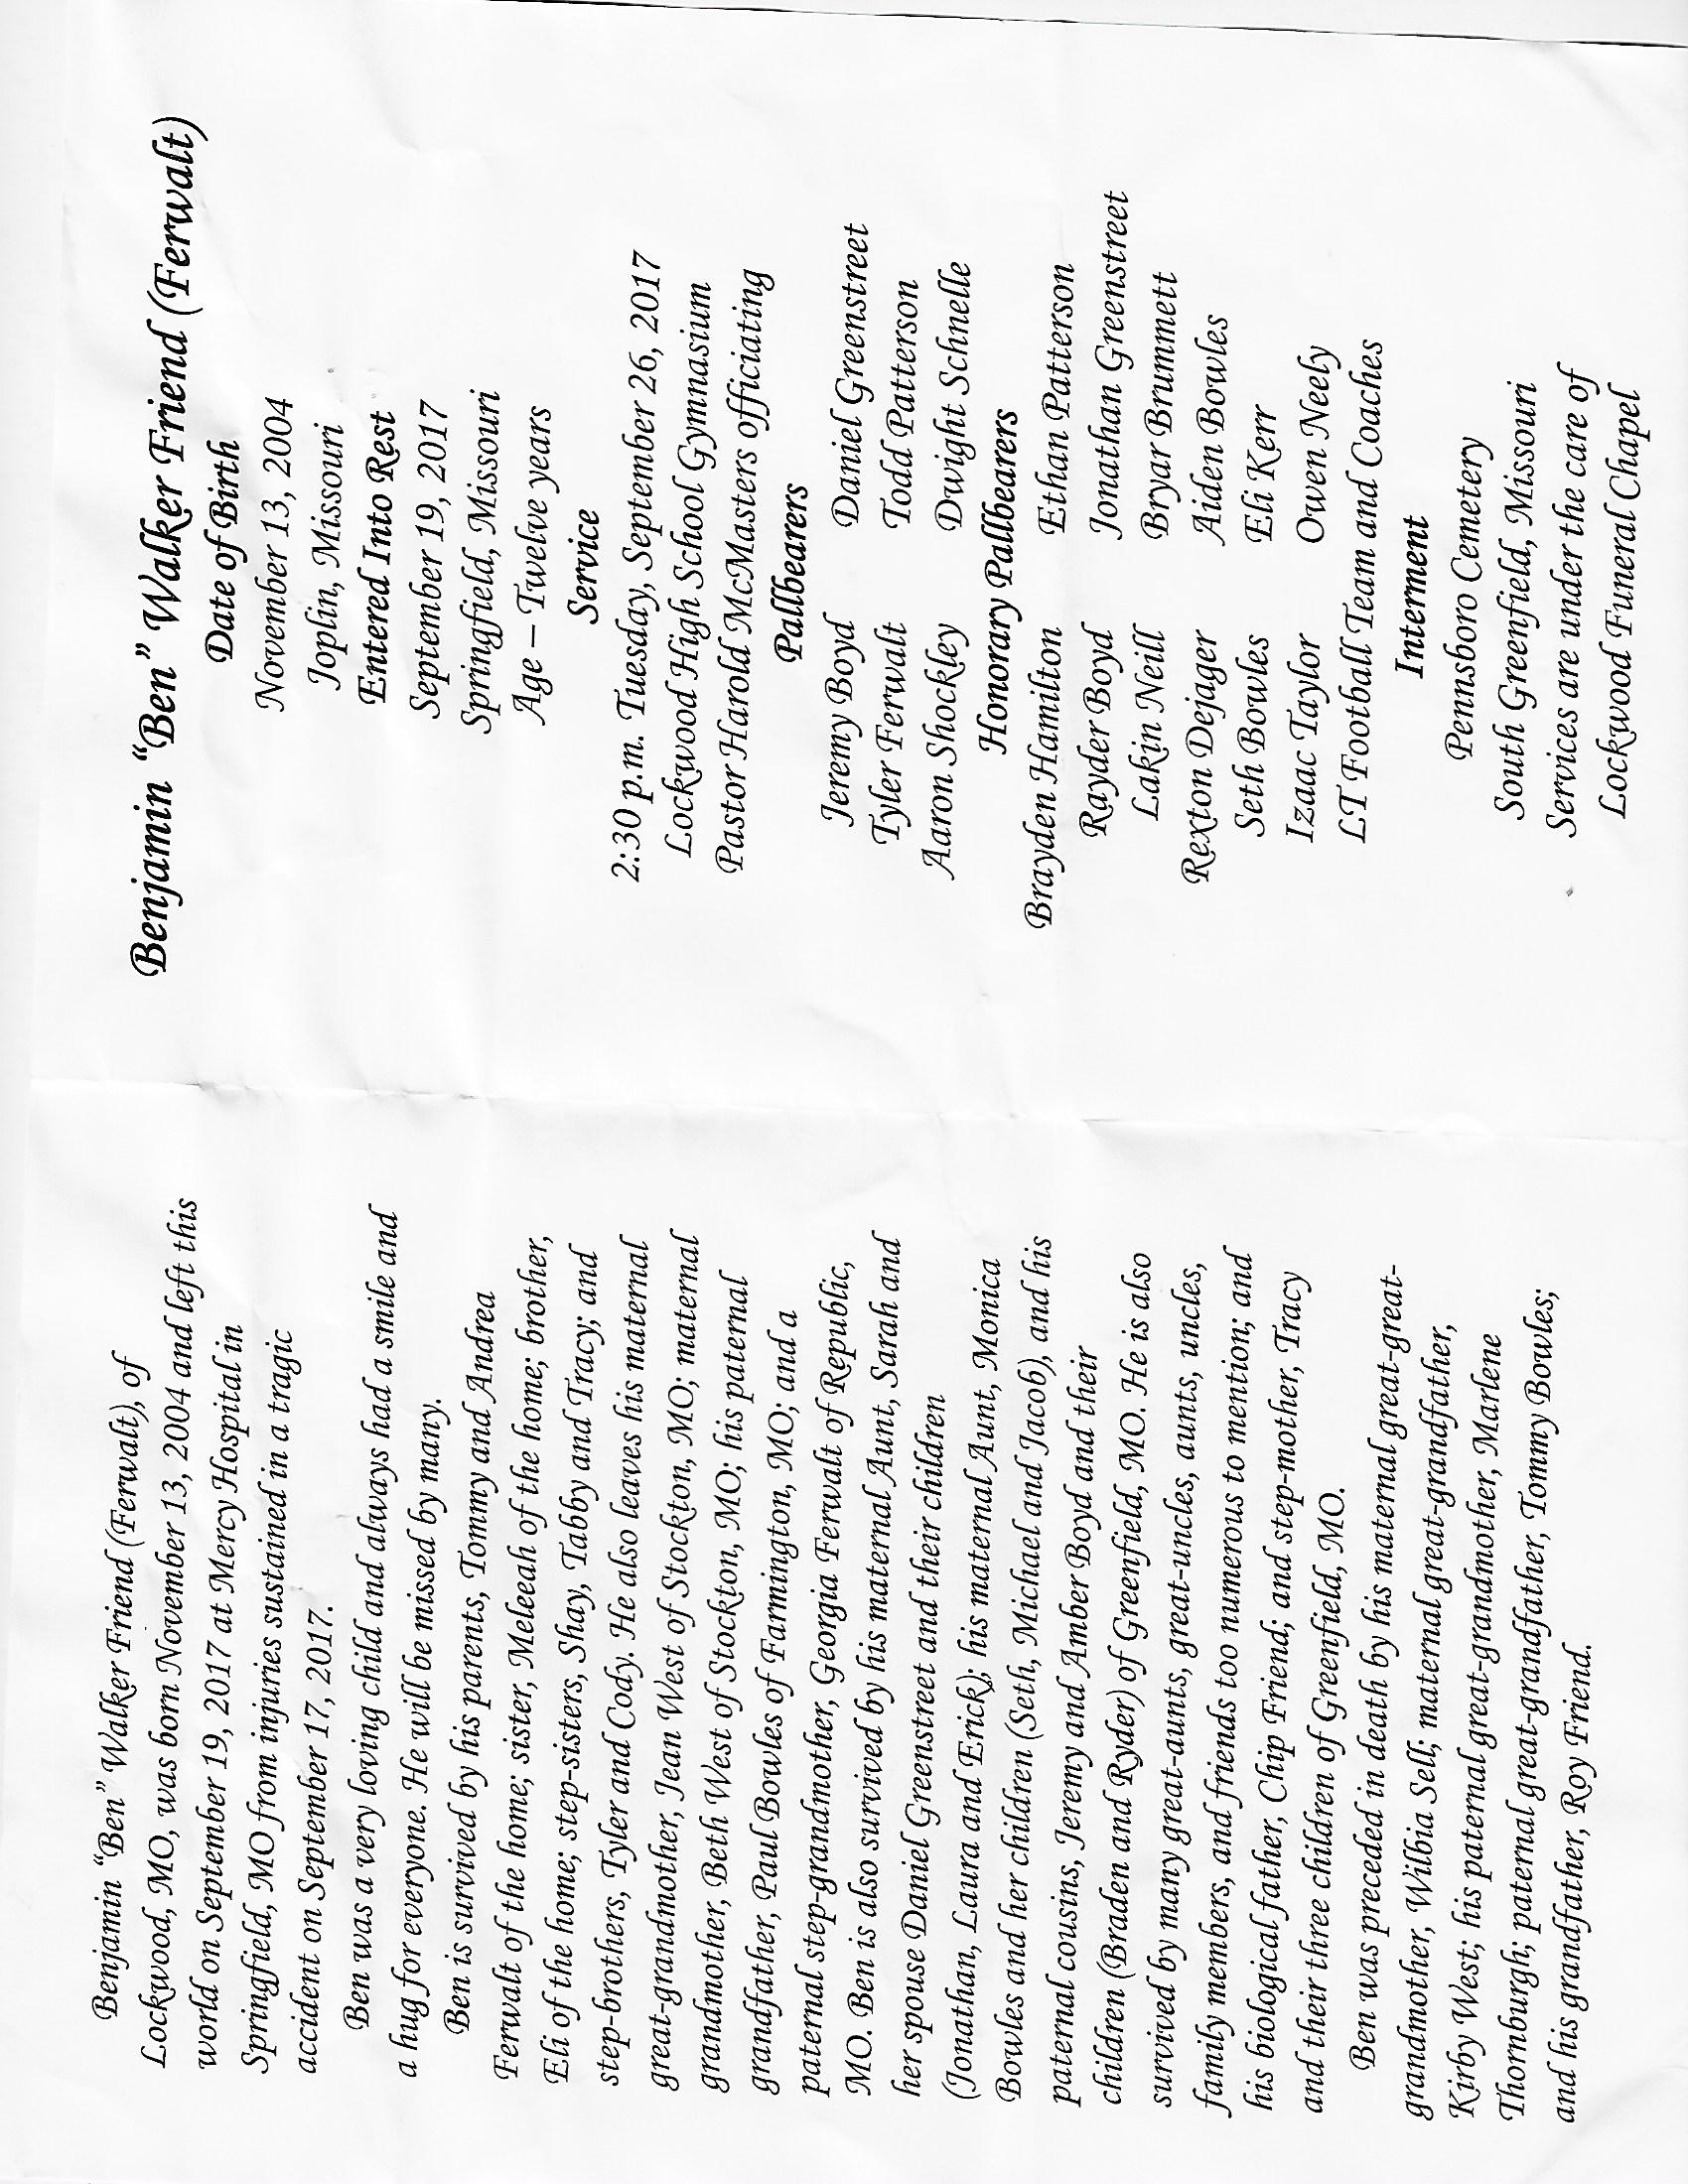 Benjamin “Ben” Walker Friend (Ferwalt), of
Lockwood, MO, was born November 13, 2004 and left this
world on September 19, 2017 at Mercy Hospital in
Springfield, MO from injuries sustained in a tragic
accident on September 17, 2017.
Ben was a very loving child and always had a smile and
a hug for everyone. He will be missed by many.
Ben is survived by his parents, Tommy and Andrea
Ferwalt of the home; sister, Meleeah of the home; brother,
Eli of the home; step-sisters, Shay, Tabby and Tracy; and
step-brothers, Tyler and Cody. He also leaves his maternal
great-grandmother, Jean West of Stockton, MO; maternal
grandmother, Beth West of Stockton, MO; his paternal
grandfather, Paul Bowles of Farmington, MO; and a
paternal step-grandmother, Georgia Ferwalt of Republic,
MO. Ben is also survived by his maternal Aunt, Sarah and
her spouse Daniel Greenstreet and their children
(Jonathan, Laura and Erick); his maternal Aunt, Monica
Bowles and her children (Seth, Michael and Jacob), and his
paternal cousins, Jeremy and Amber Boyd and their
children (Braden and Ryder) of Greenfield, MO. He is also
survived by many great-aunts, great-uncles, aunts, uncles,
family members, and friends too numerous to mention; and
his biological father, Chip Friend; and step-mother, Tracy
and their three children of Greenfield, MO.
Ben was preceded in death by his maternal great-great-
grandmother, Wilbia Sell; maternal great-grandfather,
Kirby West; his paternal great-grandmother, Marlene
Thornburgh; paternal great-grandfather, Tommy Bowles;
and his grandfather, Roy Friend.
Benjamin “Ben” Walker Friend (Ferwalt)
Date of Birth
November 13, 2004
Joplin, Missouri
Entered Into Rest
September 19, 2017
Springfield, Missouri
Age – Twelve years
Service
2:30 p.m. Tuesday, September 26, 2017
Lockwood High School Gymnasium
Pastor Harold McMasters officiating
Pallbearers
Jeremy Boyd Daniel Greenstreet
Tyler Ferwalt Todd Patterson
Aaron Shockley Dwight Schnelle
Honorary Pallbearers
Brayden Hamilton Ethan Patterson
Rayder Boyd Jonathan Greenstreet
Lakin Neill Bryar Brummett
Rexton Dejager Aiden Bowles
Seth Bowles Eli Kerr
Izaac Taylor Owen Neely
LT Football Team and Coaches
Interment
Pennsboro Cemetery
South Greenfield, Missouri
Services are under the care of
Lockwood Funeral Chapel